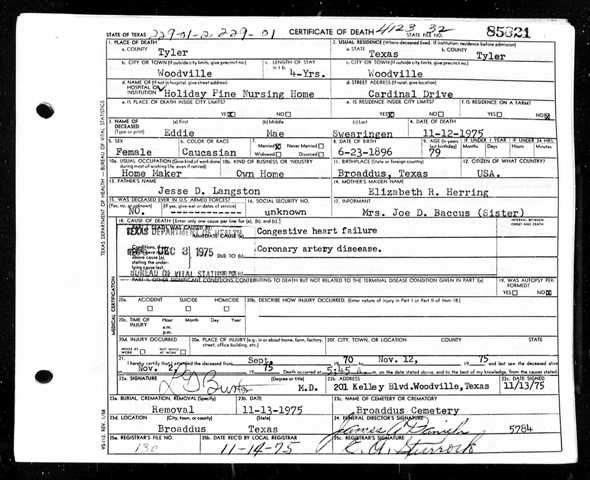 STATE OF TEXAS 229-01-2 229-01 CERTIFICATE OF DEATH 41123 32 STATE FILE NO. 85821
1. PLACE OF DEATH 2. USUAL RESIDENCE (Where deceased lived. If institution: residence before admission)
a. COUNTY Tyler a. STATE Texas b. COUNTY Tyler
b. CITY OR TOWN (If outside city limits, give precinct no.) Woodville c. LENGTH OF STAY in 1 b. 4-Yrs. c. CITY OR TOWN (If outside city limits, give precinct no.) Woodville
d. NAME OF (If not in hospital, give street address) HOSPITAL OR INSTITUTION Holiday Fine Nursing Home d. STREET ADDRESS (If rural, give location) Cardinal Drive
e. IS PLACE OF DEATH INSIDE CITY LIMITS? YES NO e. IS RESIDENCE INSIDE CITY LIMITS? YES NO f. IS RESIDENCE ON A FARM? YES NO
3. NAME OF DECEASED (Type or print) (a) First Eddie (b) Middle Mae (c) Last Swearingen 4. DATE OF DEATH 11-12-1975
5. SEX Female 6. COLOR OR RACE Caucasian 7. Married Never Married Widowed Divorced 8. DATE OF BIRTH 6-23-1896 9. AGE (In years last birthday) 79 IF UNDER 1 YEAR Months Days IF UNDER 24 HRS. Hours Minutes
10a. USUAL OCCUPATION (Give kind of work done during most of working life, even if retired) Home Maker 10b. KIND OF BUSINESS OR INDUSTRY Own Home 11. BIRTHPLACE (State or foreign country) Broaddus, Texas 12. CITIZEN OF WHAT COUNTRY? USA.
13. FATHER'S NAME Jesse D. Langston 14. MOTHER'S MAIDEN NAME Elizabeth R. Herring
15. WAS DECEASED EVER IN U.S. ARMED FORCES? (Yes, no, or unknown) NO. (If yes, give war or dates of service) ------------- 16. SOCIAL SECURITY NO. unknown 17. INFORMANT Mrs. Joe D. Baccus (Sister)
18. CAUSE OF DEATH [Enter only one cause per line for (a), (b), and (c).] INTERVAL BETWEEN ONSET AND DEATH
PART I. DEATH WAS CAUSED BY: IMMEDIATE CAUSE (a) Congestive heart failure
TEXAS DEPARTMENT OF HEALTH
DEC 3 1975
Conditions, if any, which gave rise to above cause (a), stating the underlying cause last. DUE TO (b) Coronary artery disecase.
BUREAU OF VITAL STATISTICS
PART II. OTHER SIGNIFICANT CONDITIONS CONTRIBUTING TO DEATH BUT NOT RELATED TO THE TERMINAL DISEASE CONDITION GIVEN IN PART I(a) 19. WAS AUTOPSY PERFORMED? YES NO
20a. ACCIDENT SUICIDE HOMICIDE 20b. DESCRIBE HOW INJURY OCCURRED. (Enter nature of injury in Part I or Part II of item 18.)
20c. TIME OF INJURY Hour Month Day Year a.m. p.m.
20d. INJURY OCCURRED WHILE AT WORK NOT WHILE AT WORK 20e. PLACE OF INJURY (e.g., in or about home, farm, factory, street, office building, etc.) 20f. CITY, TOWN, OR LOCATION COUNTY STATE
21. I hereby certify that I attended the deceased from Sept. 70 Nov. 12, 75 and last saw the deceased alive
Nov. 2, 75 Death occurred at 5:45 on the date stated above, and to the best of my knowledge, from the causes stated.
22a. SIGNATURE (Degree or title) M.D. 22b. ADDRESS 201 Kelley Blvd.Woodville,Texas 22c. DATE SIGNED 11/13/75
23a. BURIAL, CREMATION, REMOVAL (Specify) Removal 23b. DATE 11-13-1975 23c. NAME OF CEMETERY OR CREMATORY Broaddus Cemetery
23d. LOCATION (City, town, or county) (State) Broaddus Texas 24. FUNERAL DIRECTOR'S SIGNATURE James A Daniels 5784
25a. REGISTRAR'S FILE NO. 130 25b. DATE REC'D BY LOCAL REGISTRAR 11-14-75 25c. REGISTRAR'S SIGNATURE C. A. Sturrock
TEXAS DEPARTMENT OF HEALTH — BUREAU OF VITAL STATISTICS
MEDICAL CERTIFICATION